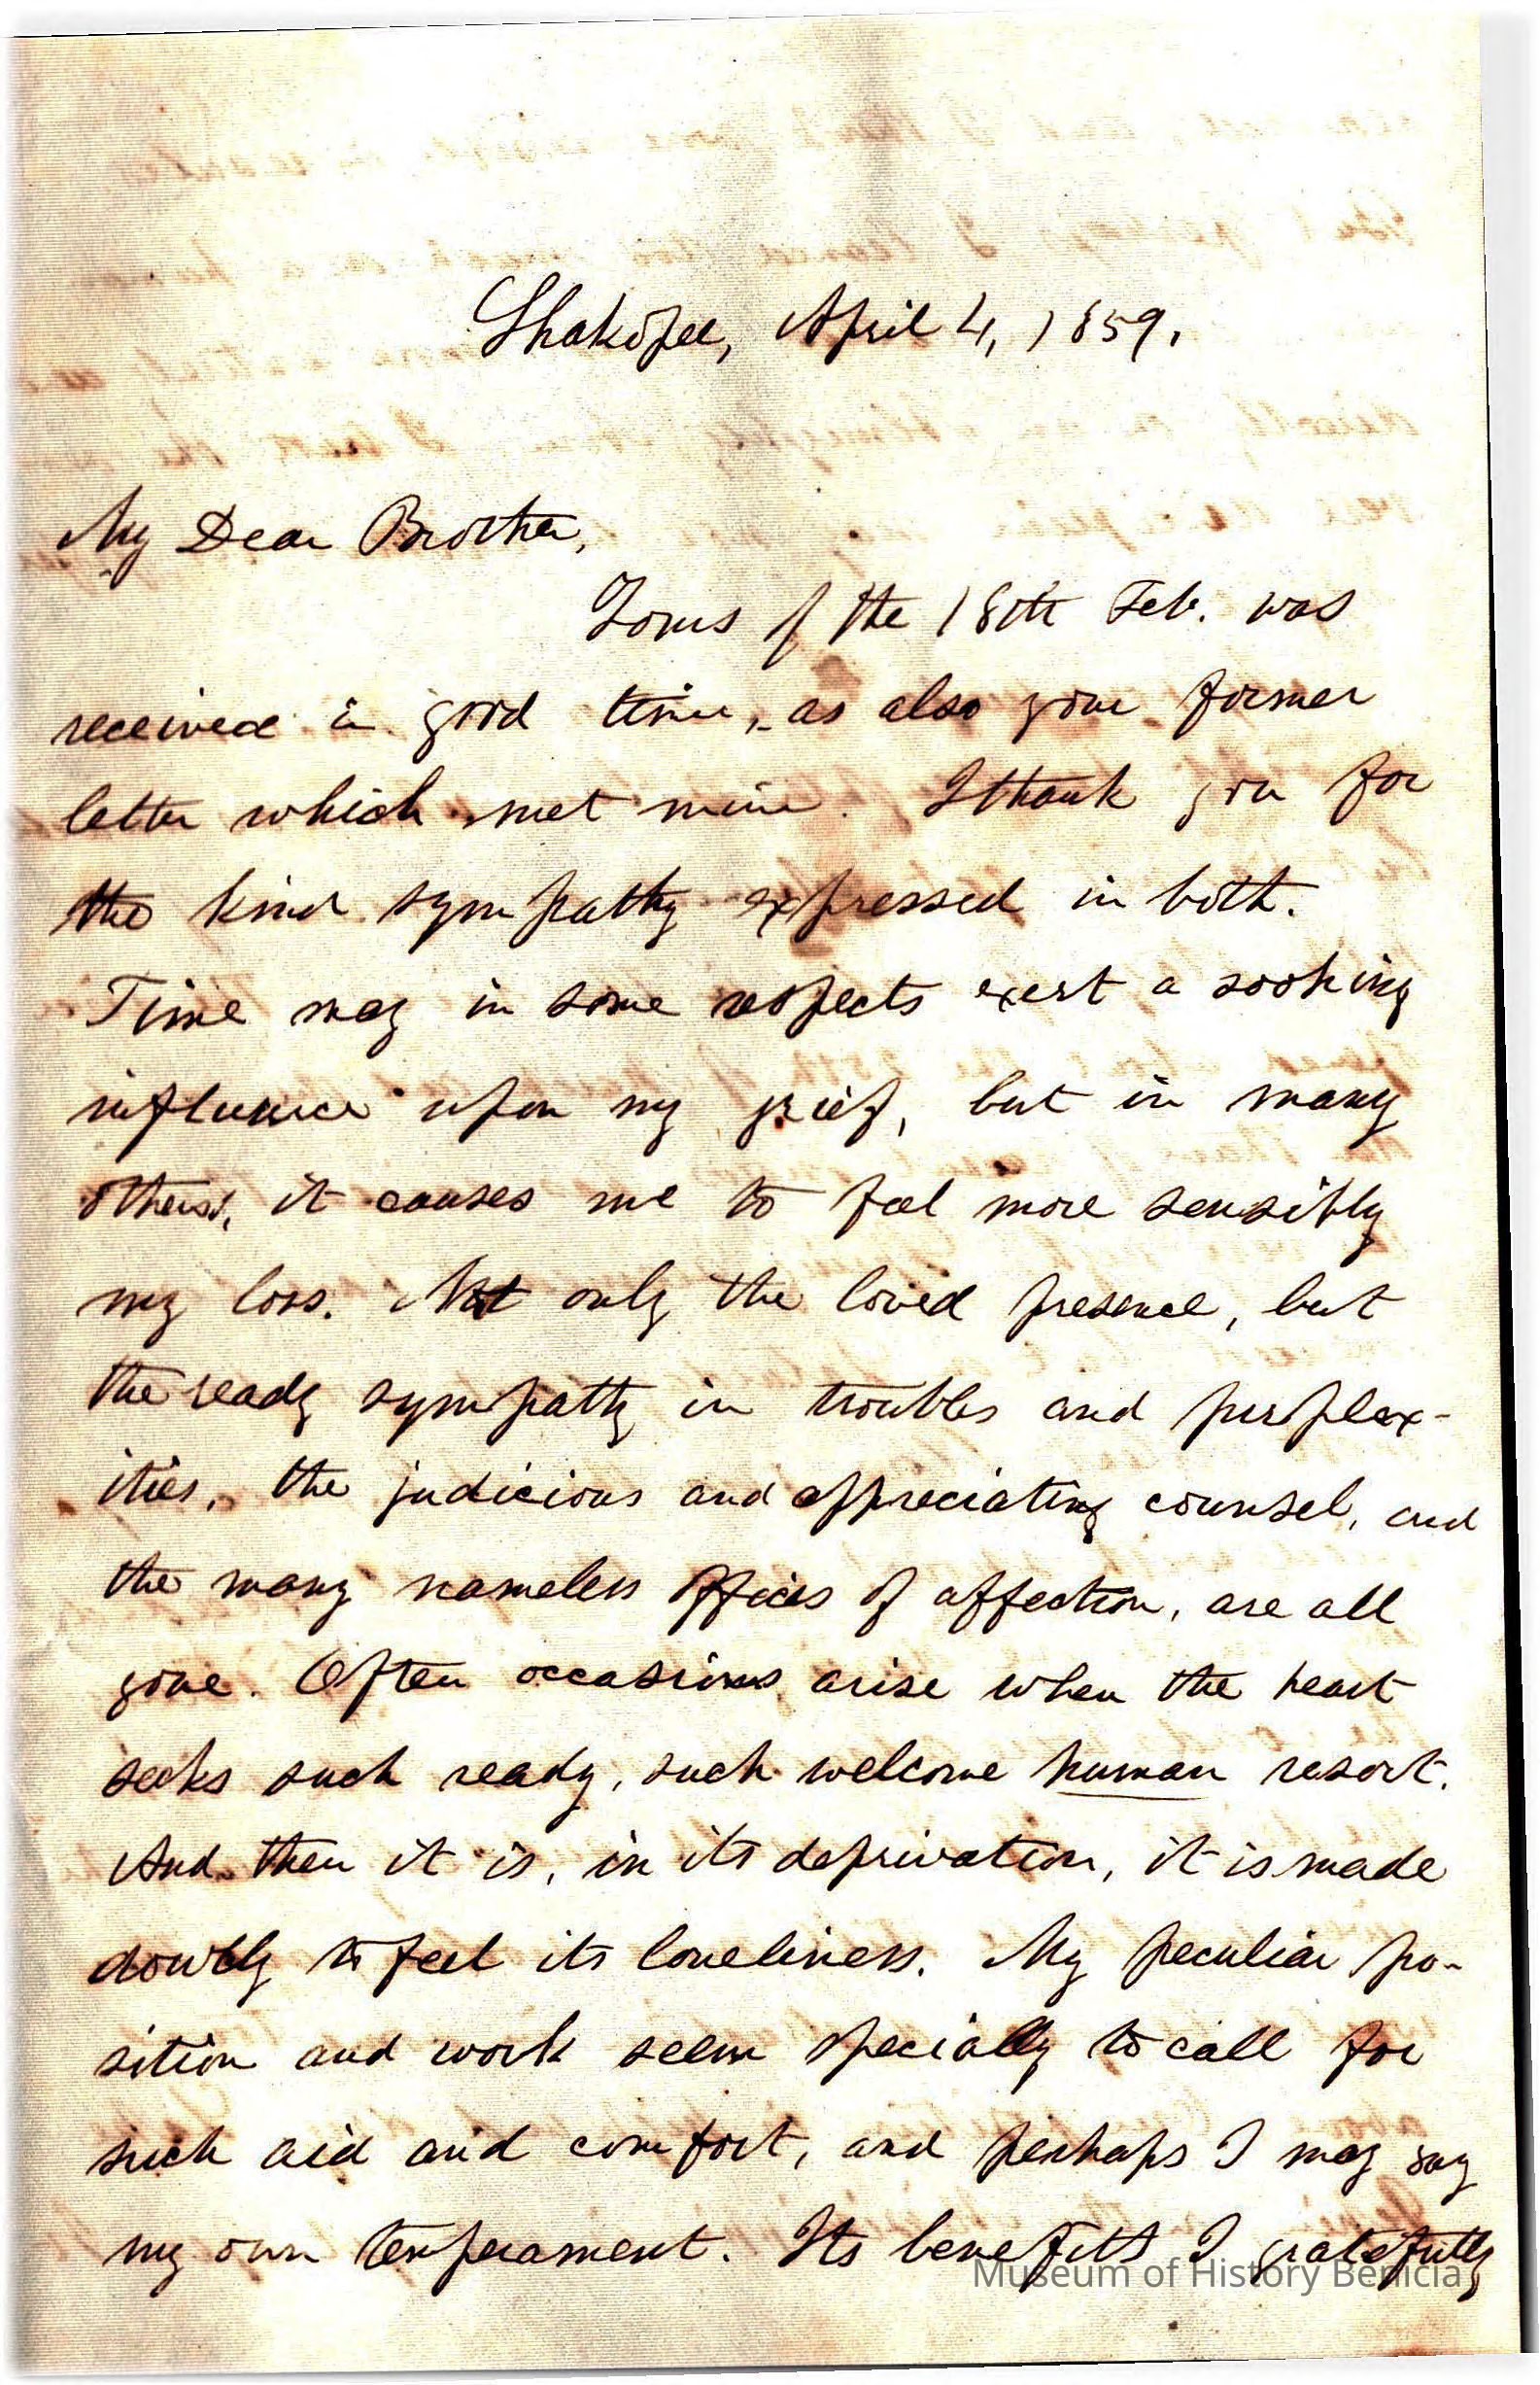 Shakopee, April 4, 1859.
My Dear Brother,
Yours of the 18th Feb. was
received in good time, as also your former
letter which met mine. I thank you for
the kind sympathy expressed in both.
Time may in some respects exert a soothing
influence upon my grief, but in many
others, it causes me to feel more sensibly
my loss. Not only the loved presence, but
the ready sympathy in troubles and perplex-
ities, the judicious and appreciating counsel, and
the many nameless offices of affection, are all
gone. Often occasions arise when the heart
seeks such ready, such welcome human resort.
And then it is, in its deprivation, it is made
doubly to feel its loneliness. My peculiar po-
sition and work seem specially to call for
such aid and comfort, and perhaps I may say
my own temperament. Its benefits I gratefully
Museum of History Benicia